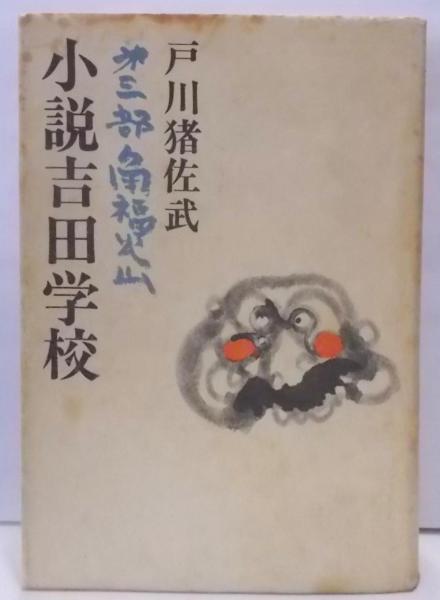 戸川猪佐武
第三部 角福火山
小説吉田学校